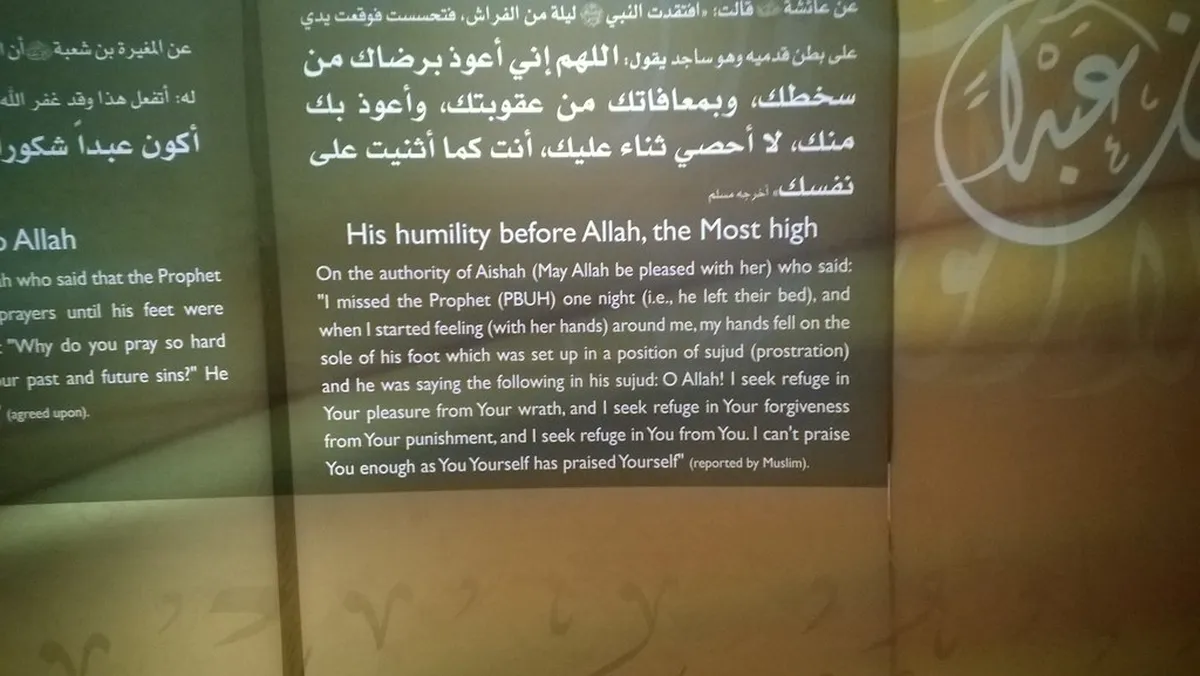 عن المغيرة بن شعبة ﷺ أن
له: أتفعل هذا وقد غفر الله
أكون عبداً شكورا
o Allah
ah who said that the Prophet
prayers until his feet were
: "Why do you pray so hard
our past and future sins?" He
" (agreed upon).
عن عائشة قالت: «افتقدت النبي ﷺ ليلة من الفراش، فتحسست فوقعت يدي
على بطن قدميه وهو ساجد يقول: اللهم إني أعوذ برضاك من
سخطك، وبمعافاتك من عقوبتك، وأعوذ بك
منك، لا أحصي ثناء عليك، أنت كما أثنيت على
نفسك» أخرجه مسلم
His humility before Allah, the Most high
On the authority of Aishah (May Allah be pleased with her) who said:
"I missed the Prophet (PBUH) one night (i.e., he left their bed), and
when I started feeling (with her hands) around me, my hands fell on the
sole of his foot which was set up in a position of sujud (prostration)
and he was saying the following in his sujud: O Allah! I seek refuge in
Your pleasure from Your wrath, and I seek refuge in Your forgiveness
from Your punishment, and I seek refuge in You from You. I can't praise
You enough as You Yourself has praised Yourself" (reported by Muslim).
عبداً